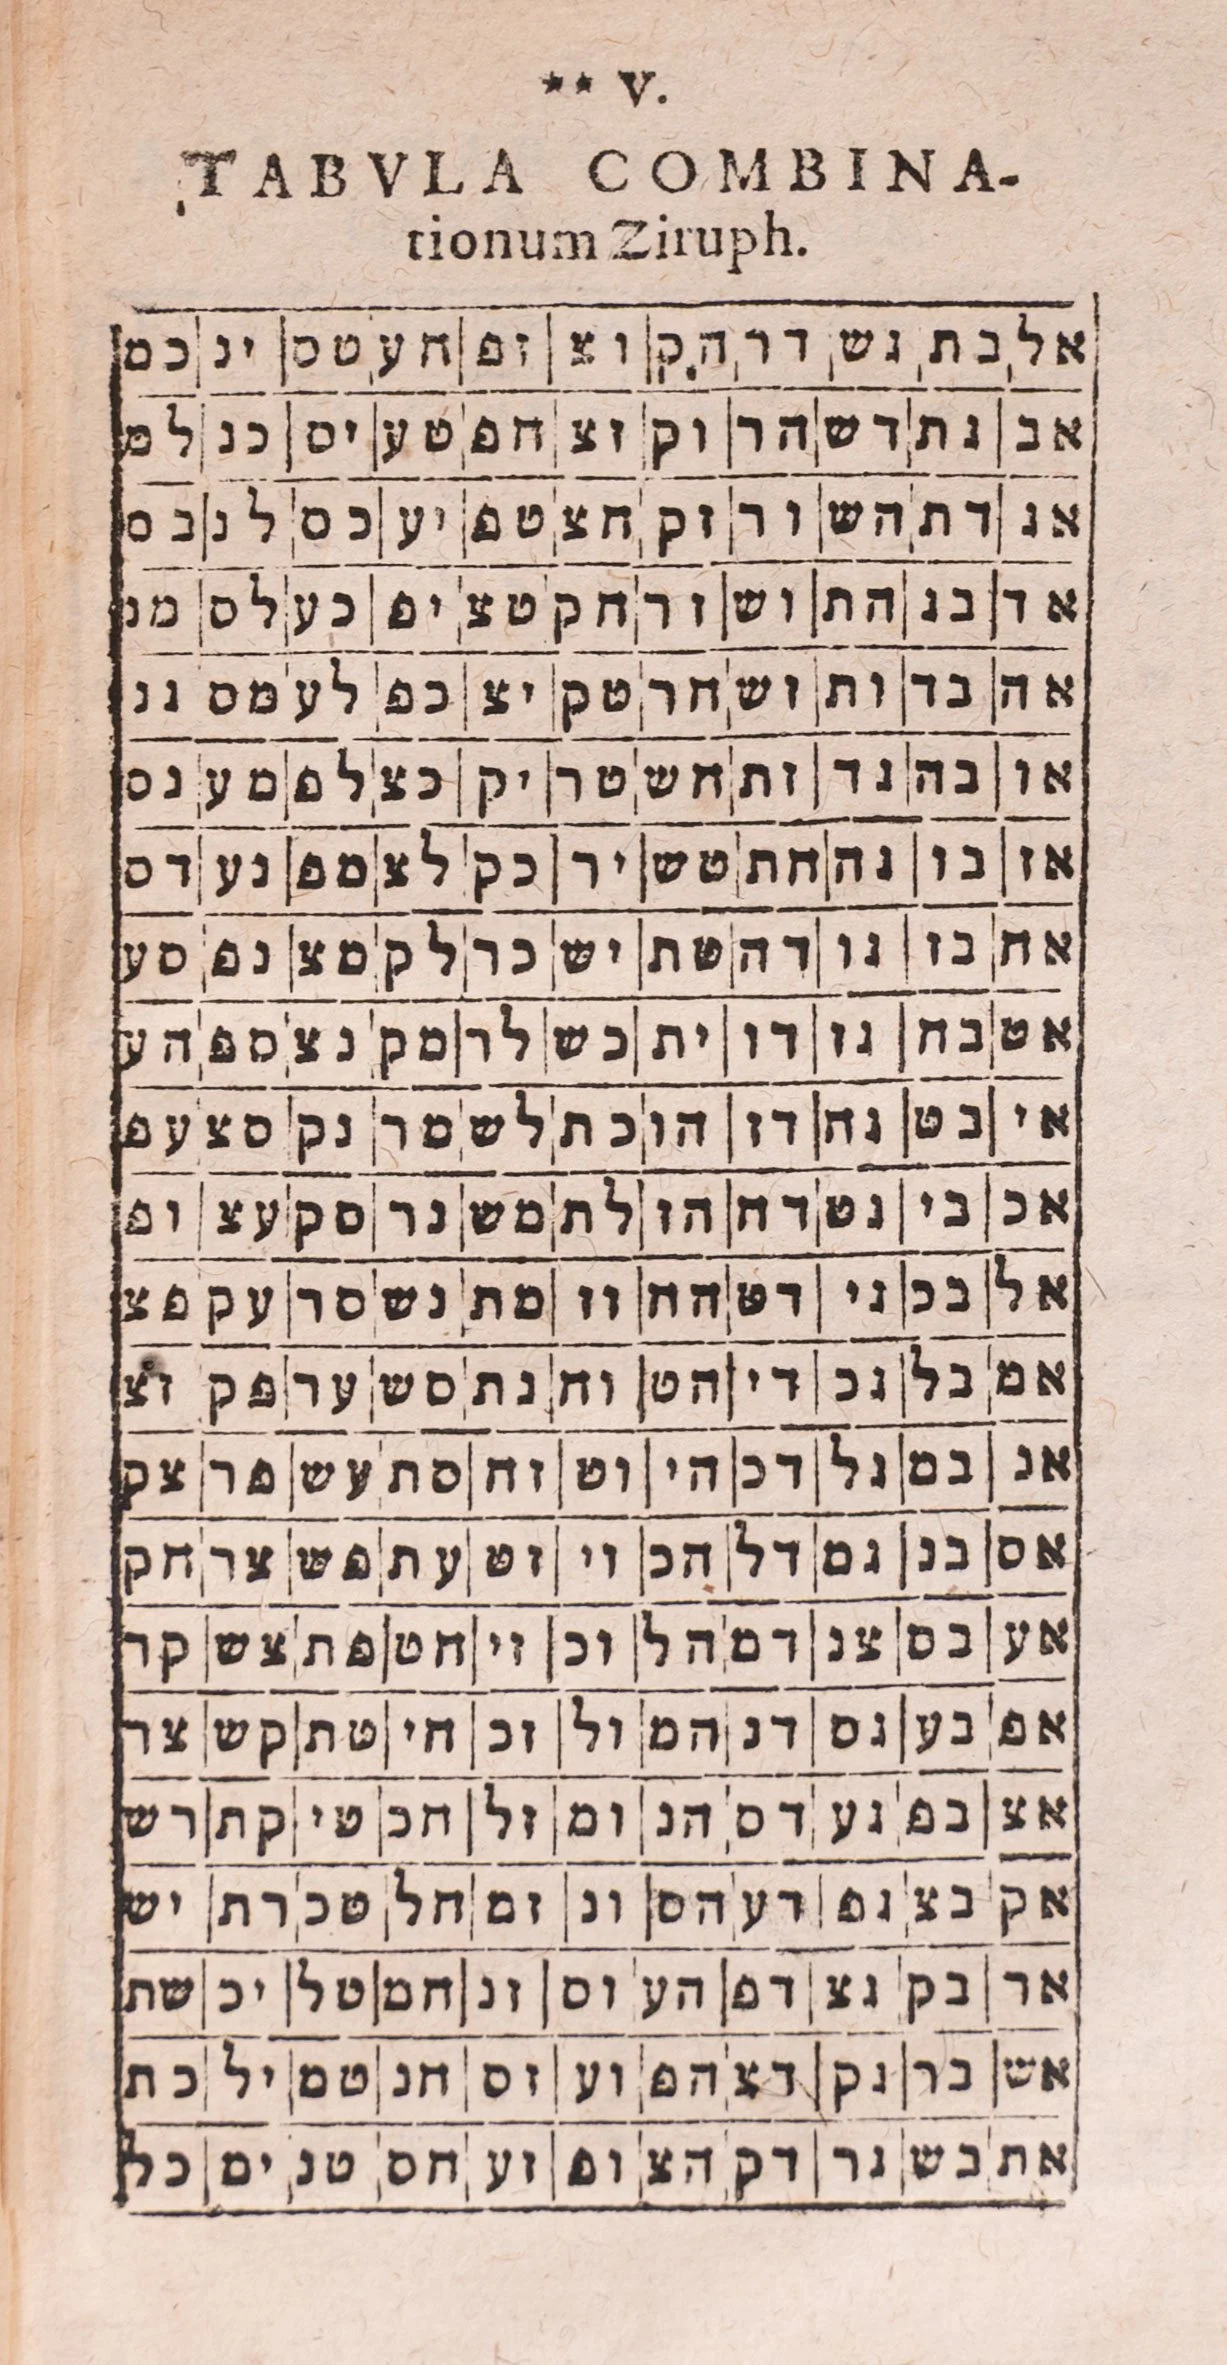 ** V.
TABVLA COMBINA-
tionum Ziruph.
אל בת גש דר הק וצ זפ חע טס ינ כמ
אב גת דש הר וק זצ חפ טע יס כנ למ
אג דת הש ור זק חצ טפ יע כס לנ במ
אד בג הת וש זר חק טצ יפ כע לס מנ
אה בד ות זש חר טק יצ כפ לע מס גנ
או בה גד זת חש טר יק כצ לפ מע נס
אז בו גה חת טש יר כק לצ מפ נע דס
אח בז גו דה טת יש כר לק מצ נפ סע
אט בח גז דו ית כש לר מק נצ ספ הע
אי בט גח דז הו כת לש מר נק סצ עפ
אכ בי גט דח הז לת מש נר סק עצ ופ
אל בכ גי דט הח וז מת נש סר עק פצ
אמ בל גכ די הט וח נת סש ער פק זצ
אנ במ גל דכ הי וט זח סת עש פר צק
אס בנ גמ דל הכ וי זט עת פש צר חק
אע בס צנ דמ הל וכ זי חט פת צש קר
אפ בע גס דנ המ ול זכ חי טת קש צר
אצ בפ גע דס הנ ומ זל חכ טי קת רש
אק בצ גפ דע הס ונ זמ חל טכ רת יש
אר בק גצ דפ הע וס זנ חמ טל יכ שת
אש בר גק דצ הפ וע זס חנ טמ יל כת
את בש גר דק הצ ופ זע חס טנ ימ כל